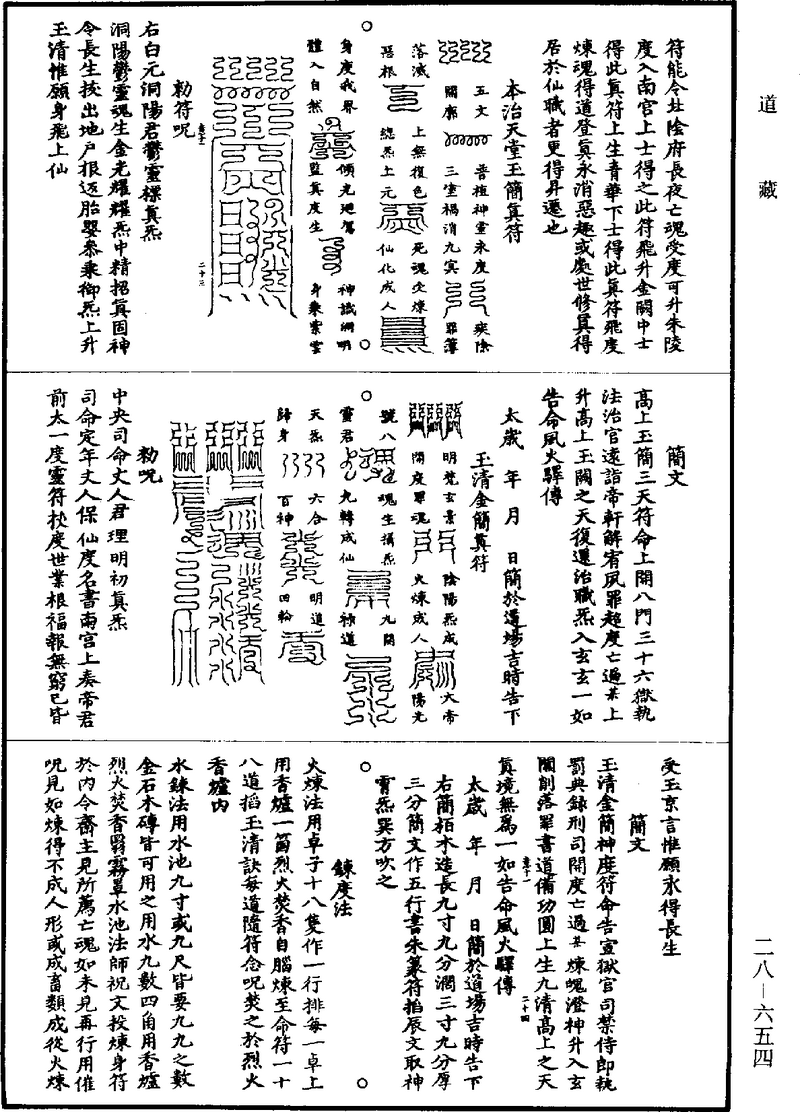 道藏
符能令北陰府長夜亡魂受度可升朱陵
度入南宮上士得之此符飛升金闕中士
得此真符上生青華下士得此真符飛度
煉魂得道登真永消惡趣或處世修真得
居於仙職者更得昇遷也
本治天堂玉簡真符
五文 普植神靈永度 疾除
開廓 三塗禍消九冥 罪簿
落滅 上無復色 死魂受煉
惡根 總炁上元 仙化成人
身度我界 傾光迴駕 神識洞明
體入自然 監真度生 身乘紫雲
卷十一 二十三
勑符呪
右白元洞陽君鬱靈標真炁
洞陽鬱靈魂生金光耀耀炁中精招真固神
令長生拔出地戶根迈胎嬰叅乘御炁上升
玉清惟願身飛上仙
簡文
高上玉簡三天符命上開八門三十六獄執
法治官遠詣帝軒解宥夙罪超度亡過某上
升高上玉闕之天復還治職炁入玄玄一如
告命風火驛傳
太歲 年 月 日簡於道場吉時告下
玉清金簡真符
明梵玄景 陰陽炁成 大帝
開度軍魂 火煉成人 陽光
號八 魂生攝炁 九開
靈君 九轉成仙 神道
天炁 六合 明道
歸身 百神 四輪
勑呪
中央司命丈人君理明初真炁
司命定年丈人保仙度名書南宮上奏帝君
前太一度靈符拔度世業根福報無窮已皆
受玉京言惟願永得長生
簡文
玉清金簡神度符命告宣獄官司禁侍郎執
罰典錄刑司開度亡過某煉魄澄神升入玄
闕削落罪書道備功圓上生九清高上之天
卷十一 二十四
真境無為一如告命風火驛傳
太歲 年 月 日簡於道場吉時告下
右簡栢木造長九寸九分濶三寸九分厚
三分簡文作五行書朱篆符掐辰文取神
霄炁巽方吹之
鍊度法
火煉法用卓子十八隻作一行排每一卓上
用香爐一箇烈火焚香自腦煉至命符一十
八道掐玉清訣每道隨符念呪焚之於烈火
香爐內
水鍊法用水池九寸或九尺皆要九九之數
金石木磚皆可用之用水九數四角用香爐
烈火焚香罸霧罩水池法師祝文投煉身符
於內令齋主見所薦亡魂如未見再行用催
呪見如煉得不成人形或成畜類成從火煉
二八—六五四